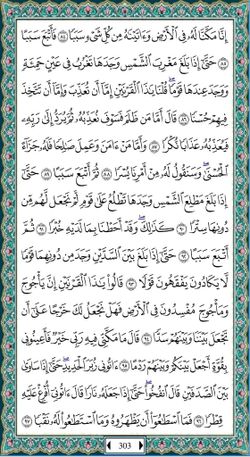 إِنَّا مَكَّنَّا لَهُۥ فِى ٱلْأَرْضِ وَءَاتَيْنَٰهُ مِن كُلِّ شَىْءٍ سَبَبًا ٨٤ فَأَتْبَعَ سَبَبًا
٨٥ حَتَّىٰٓ إِذَا بَلَغَ مَغْرِبَ ٱلشَّمْسِ وَجَدَهَا تَغْرُبُ فِى عَيْنٍ حَمِئَةٍ
وَوَجَدَ عِندَهَا قَوْمًا ۗ قُلْنَا يَٰذَا ٱلْقَرْنَيْنِ إِمَّآ أَن تُعَذِّبَ وَإِمَّآ أَن تَتَّخِذَ
فِيهِمْ حُسْنًا ٨٦ قَالَ أَمَّا مَن ظَلَمَ فَسَوْفَ نُعَذِّبُهُۥ ثُمَّ يُرَدُّ إِلَىٰ رَبِّهِۦ
فَيُعَذِّبُهُۥ عَذَابًا نُّكْرًا ٨٧ وَأَمَّا مَنْ ءَامَنَ وَعَمِلَ صَٰلِحًا فَلَهُۥ جَزَآءً
ٱلْحُسْنَىٰ ۖ وَسَنَقُولُ لَهُۥ مِنْ أَمْرِنَا يُسْرًا ٨٨ ثُمَّ أَتْبَعَ سَبَبًا ٨٩ حَتَّىٰٓ
إِذَا بَلَغَ مَطْلِعَ ٱلشَّمْسِ وَجَدَهَا تَطْلُعُ عَلَىٰ قَوْمٍ لَّمْ نَجْعَل لَّهُم مِّن
دُونِهَا سِتْرًا ٩٠ كَذَٰلِكَ وَقَدْ أَحَطْنَا بِمَا لَدَيْهِ خُبْرًا ٩١ ثُمَّ
أَتْبَعَ سَبَبًا ٩٢ حَتَّىٰٓ إِذَا بَلَغَ بَيْنَ ٱلسَّدَّيْنِ وَجَدَ مِن دُونِهِمَا قَوْمًا
لَّا يَكَادُونَ يَفْقَهُونَ قَوْلًا ٩٣ قَالُوا۟ يَٰذَا ٱلْقَرْنَيْنِ إِنَّ يَأْجُوجَ
وَمَأْجُوجَ مُفْسِدُونَ فِى ٱلْأَرْضِ فَهَلْ نَجْعَلُ لَكَ خَرْجًا عَلَىٰٓ أَن
تَجْعَلَ بَيْنَنَا وَبَيْنَهُمْ سَدًّا ٩٤ قَالَ مَا مَكَّنِّى فِيهِ رَبِّى خَيْرٌ فَأَعِينُونِى
بِقُوَّةٍ أَجْعَلْ بَيْنَكُمْ وَبَيْنَهُمْ رَدْمًا ٩٥ ءَاتُونِى زُبَرَ ٱلْحَدِيدِ ۖ حَتَّىٰٓ إِذَا سَاوَىٰ
بَيْنَ ٱلصَّدَفَيْنِ قَالَ ٱنفُخُوا۟ ۖ حَتَّىٰٓ إِذَا جَعَلَهُۥ نَارًا قَالَ ءَاتُونِىٓ أُفْرِغْ عَلَيْهِ
قِطْرًا ٩٦ فَمَا ٱسْطَٰعُوٓا۟ أَن يَظْهَرُوهُ وَمَا ٱسْتَطَٰعُوا۟ لَهُۥ نَقْبًا ٩٧
303